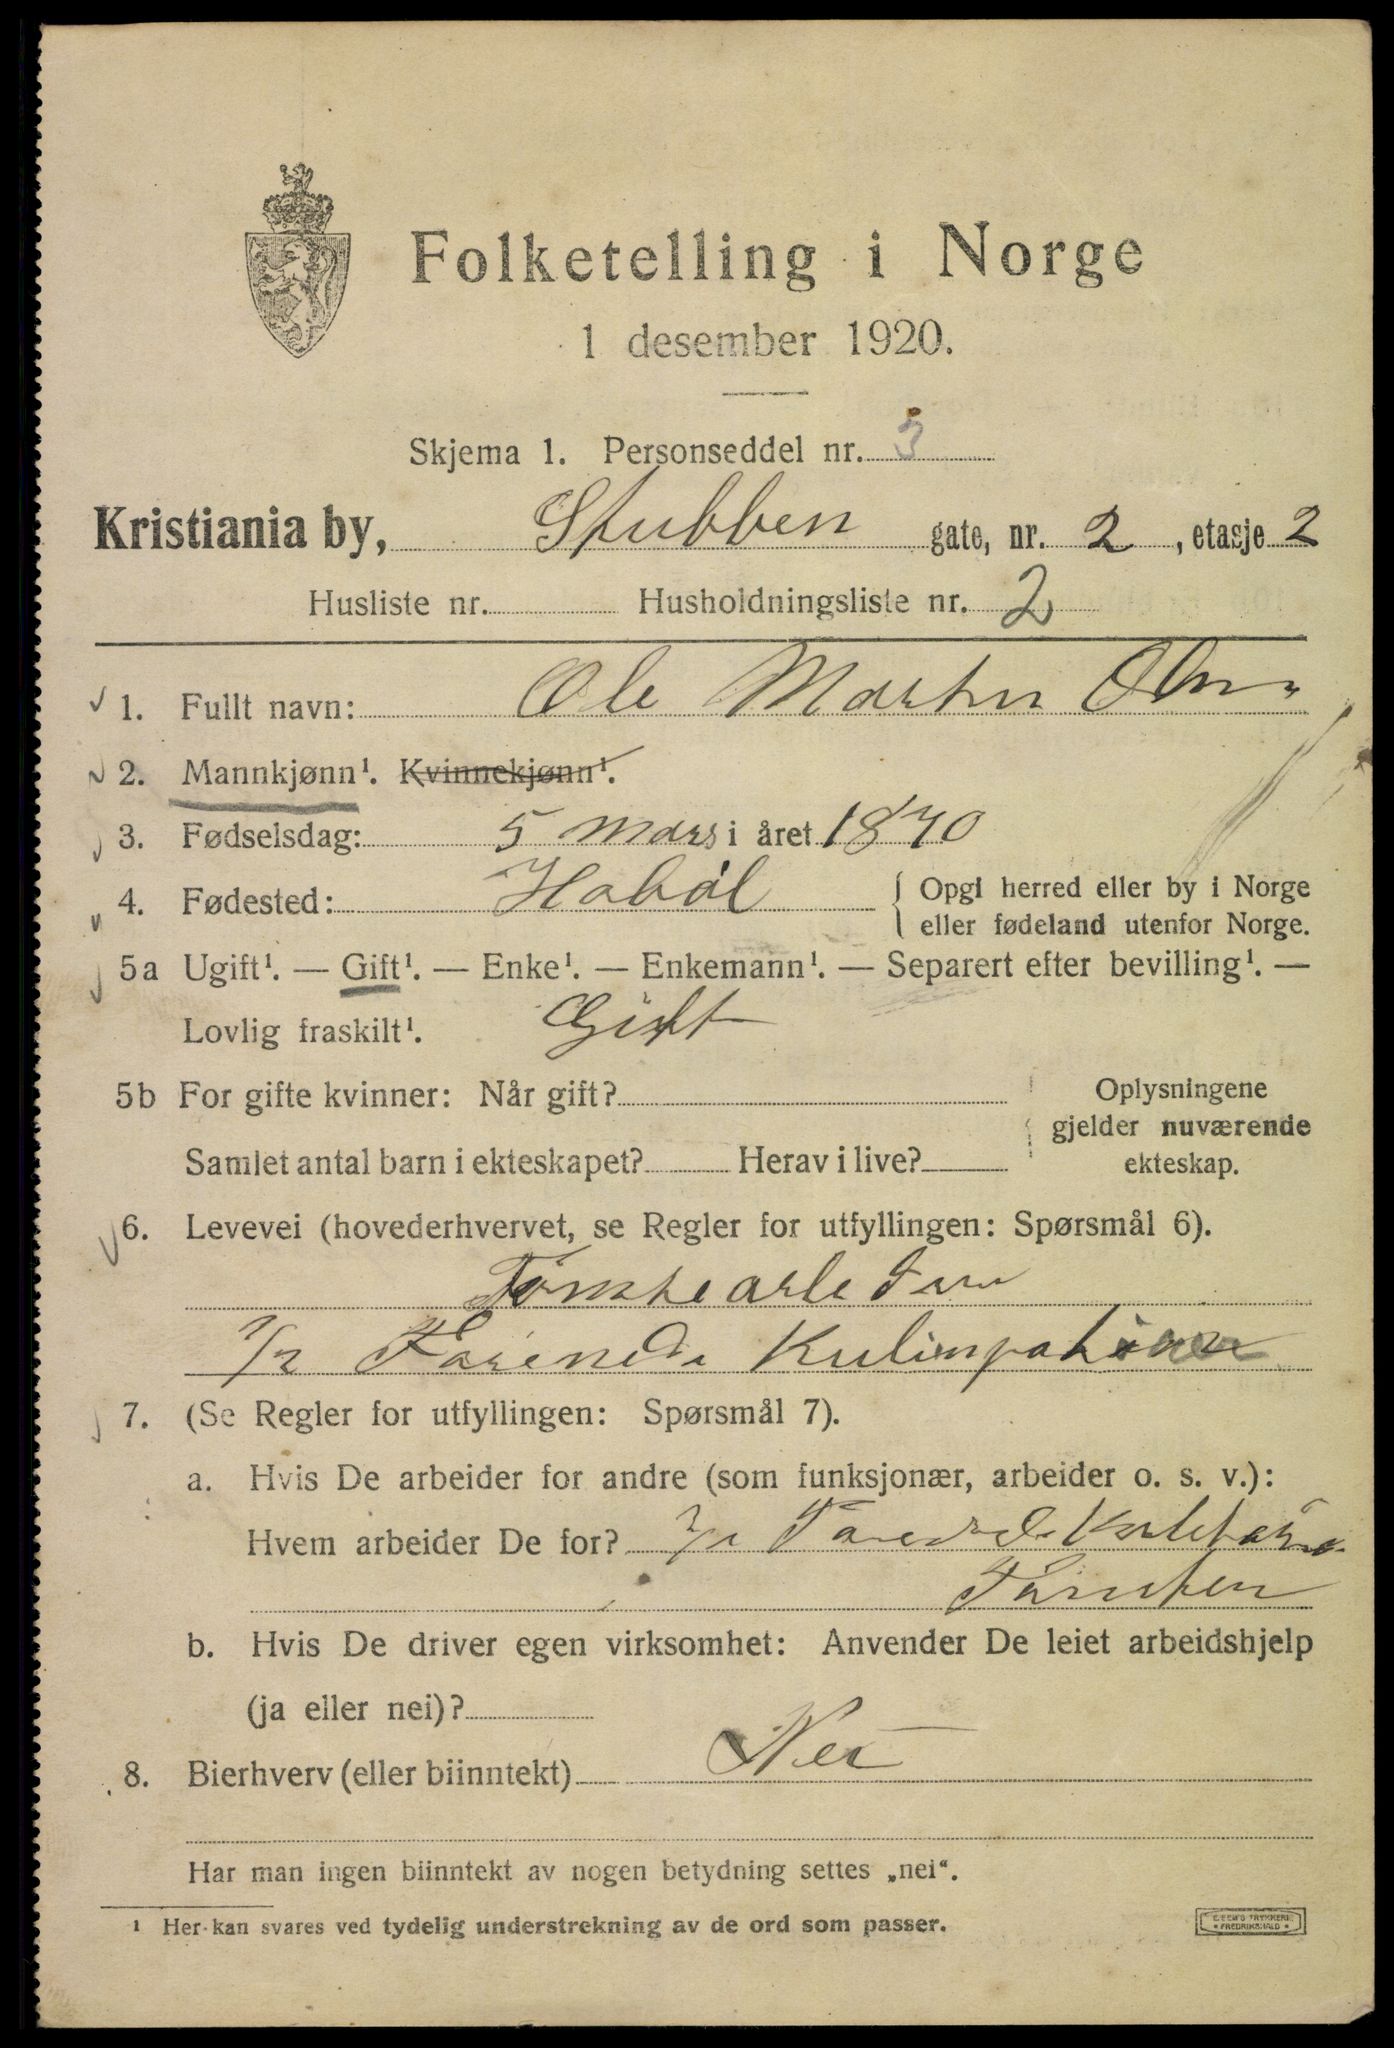 Folketelling i Norge
1 desember 1920.
Skjema 1. Personseddel nr. 3
Kristiania by, Stubben gate, nr. 2, etasje 2
Husliste nr. Husholdningsliste nr. 2
1. Fullt navn: Ole Martin Olsen
2. Mannkjønn¹. Kvinnekjønn¹.
3. Fødselsdag: 5 mars i året 1870
4. Fødested: Habøl { Opgi herred eller by i Norge
eller fødeland utenfor Norge.
5a Ugift¹. — Gift¹. — Enke¹. — Enkemann¹. — Separert efter bevilling¹. —
Lovlig fraskilt¹. Gift
5b For gifte kvinner: Når gift? Oplysningene
gjelder nuværende
Samlet antal barn i ekteskapet? Herav i live? ekteskap.
6. Levevei (hovederhvervet, se Regler for utfyllingen: Spørsmål 6).
7. (Se Regler for utfyllingen: Spørsmål 7).
a. Hvis De arbeider for andre (som funksjonær, arbeider o. s. v.):
Hvem arbeider De for?
b. Hvis De driver egen virksomhet: Anvender De leiet arbeidshjelp
(ja eller nei)?
8. Bierhverv (eller biinntekt) Nei
Har man ingen biinntekt av nogen betydning settes „nei“.
¹ Her kan svares ved tydelig understrekning av de ord som passer.
TRYKKERI
FREDRIKSHALD